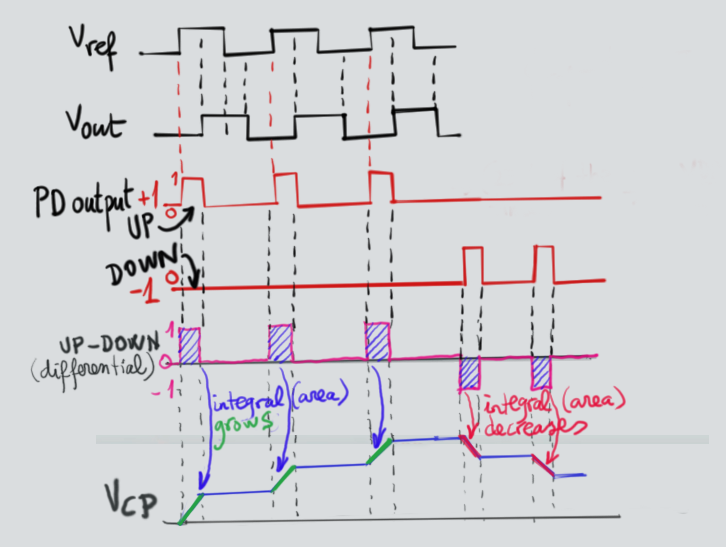 Vref
Vout
PD output +1 1
0
UP
DOWN 0
-1
1
UP-DOWN 0
(differential)
-1
integral (area)
grows
integral (area)
decreases
VCP